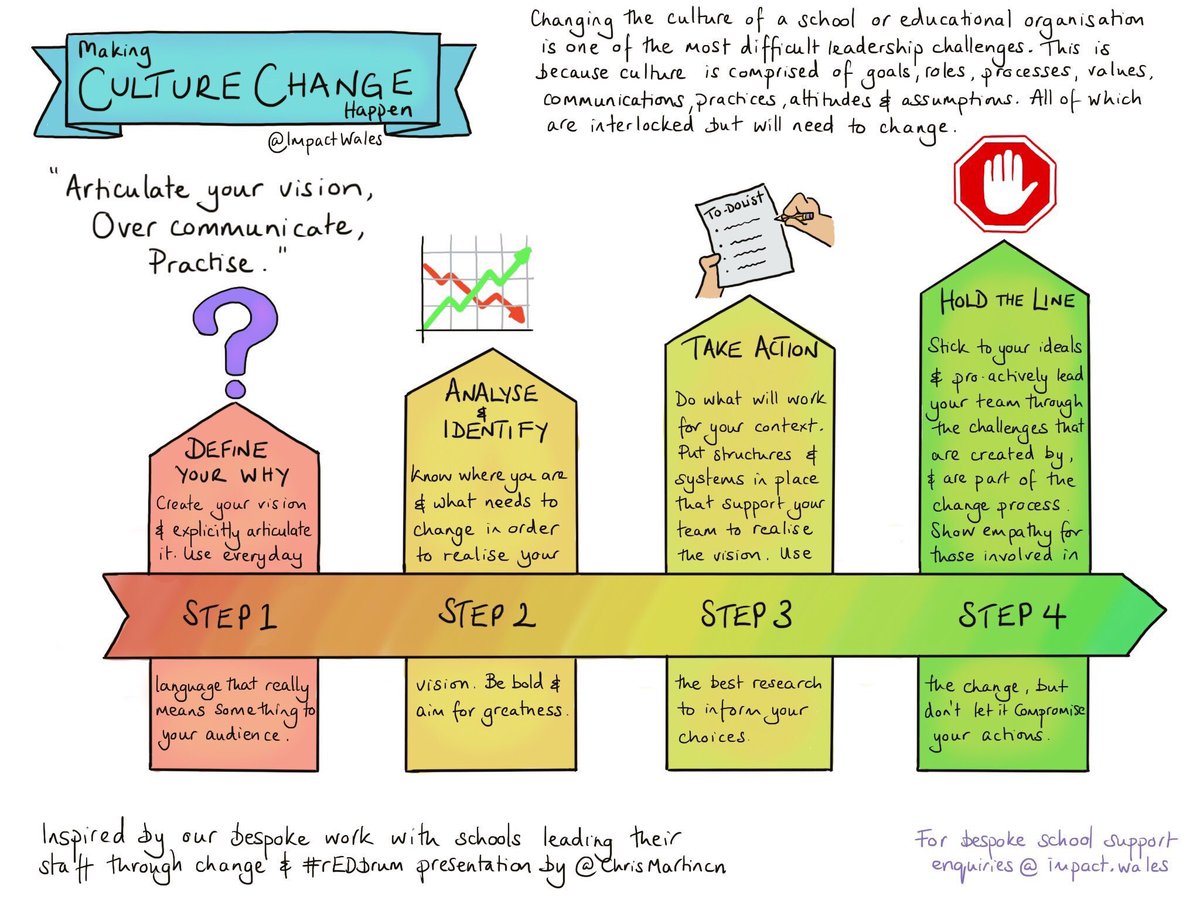 Making
CULTURE CHANGE
Happen
@ImpactWales
Changing the culture of a school or educational organisation
is one of the most difficult leadership challenges. This is
because culture is comprised of goals, roles, processes, values,
communications, practices, attitudes & assumptions. All of which
are interlocked but will need to change.
"Articulate your vision,
Over communicate,
Practise."
DEFINE
YOUR WHY
Create your vision
& explicitly articulate
it. Use everyday
STEP 1
language that really
means something to
your audience.
ANALYSE
&
IDENTIFY
Know where you are
& what needs to
change in order
to realise your
STEP 2
vision. Be bold &
aim for greatness.
TO-DO LIST
TAKE ACTION
Do what will work
for your context.
Put structures &
systems in place
that support your
team to realise
the vision. Use
STEP 3
the best research
to inform your
choices.
HOLD THE LINE
Stick to your ideals
& pro-actively lead
your team through
the challenges that
are created by,
& are part of the
change process.
Show empathy for
those involved in
STEP 4
the change, but
don't let it compromise
your actions.
Inspired by our bespoke work with schools leading their
staff through change & #rEDDrum presentation by @ChrisMartincn
For bespoke school support
enquiries@impact.wales